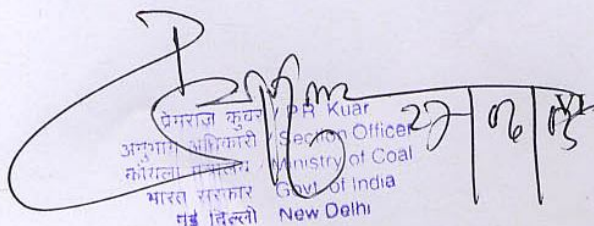 प्रेमराज कुवर / P R Kuar
अनुभाग अधिकारी / Section Officer
कोयला मंत्रालय / Ministry of Coal
भारत सरकार Govt. of India
नई दिल्ली New Delhi